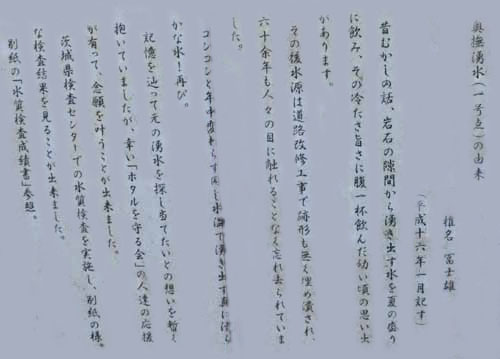 奥撫湧水(一号点)の由来
椎名 冨士雄
(平成十六年一月記す)
昔むかしの話、岩石の隙間から湧き出す水を夏の盛り
に飲み、その冷たさ旨さに腹一杯飲んだ幼い頃の思い出
があります。
その後水源は道路改修工事で跡形も無く埋め潰され、
六十余年も人々の目に触れることなく忘れ去られていま
した。
コンコンと年中変わらず同じ水温で湧き出す真に清ら
かな水!再び。
記憶を辿って元の湧水を探し当てたいとの想いを暫く
抱いていましたが、幸い「ホタルを守る会」の人達の応援
が有って、念願を叶うことが出来ました。
茨城県検査センターでの水質検査を実施し、別紙の様
な検査結果を見ることが出来ました。
別紙の「水質検査成績書」参照。